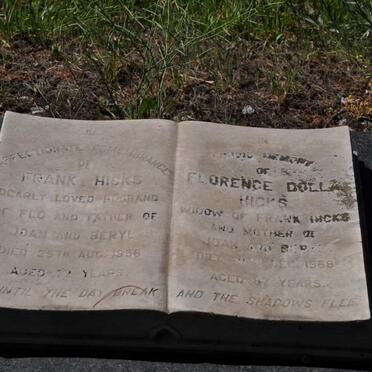 IN
AFFECTIONATE REMEMBRANCE
OF
FRANK HICKS
DEARLY LOVED HUSBAND
OF FLO AND FATHER OF
JOAN AND BERYL
DIED 25TH AUG. 1956
AGED YEARS
UNTIL THE DAY BREAK
IN
LOVING MEMORY
OF
FLORENCE
HICKS
WIDOW OF FRANK HICKS
AND MOTHER OF
JOAN AND BERYL
DIED 1968
AGED YEARS
AND THE SHADOWS FLEE